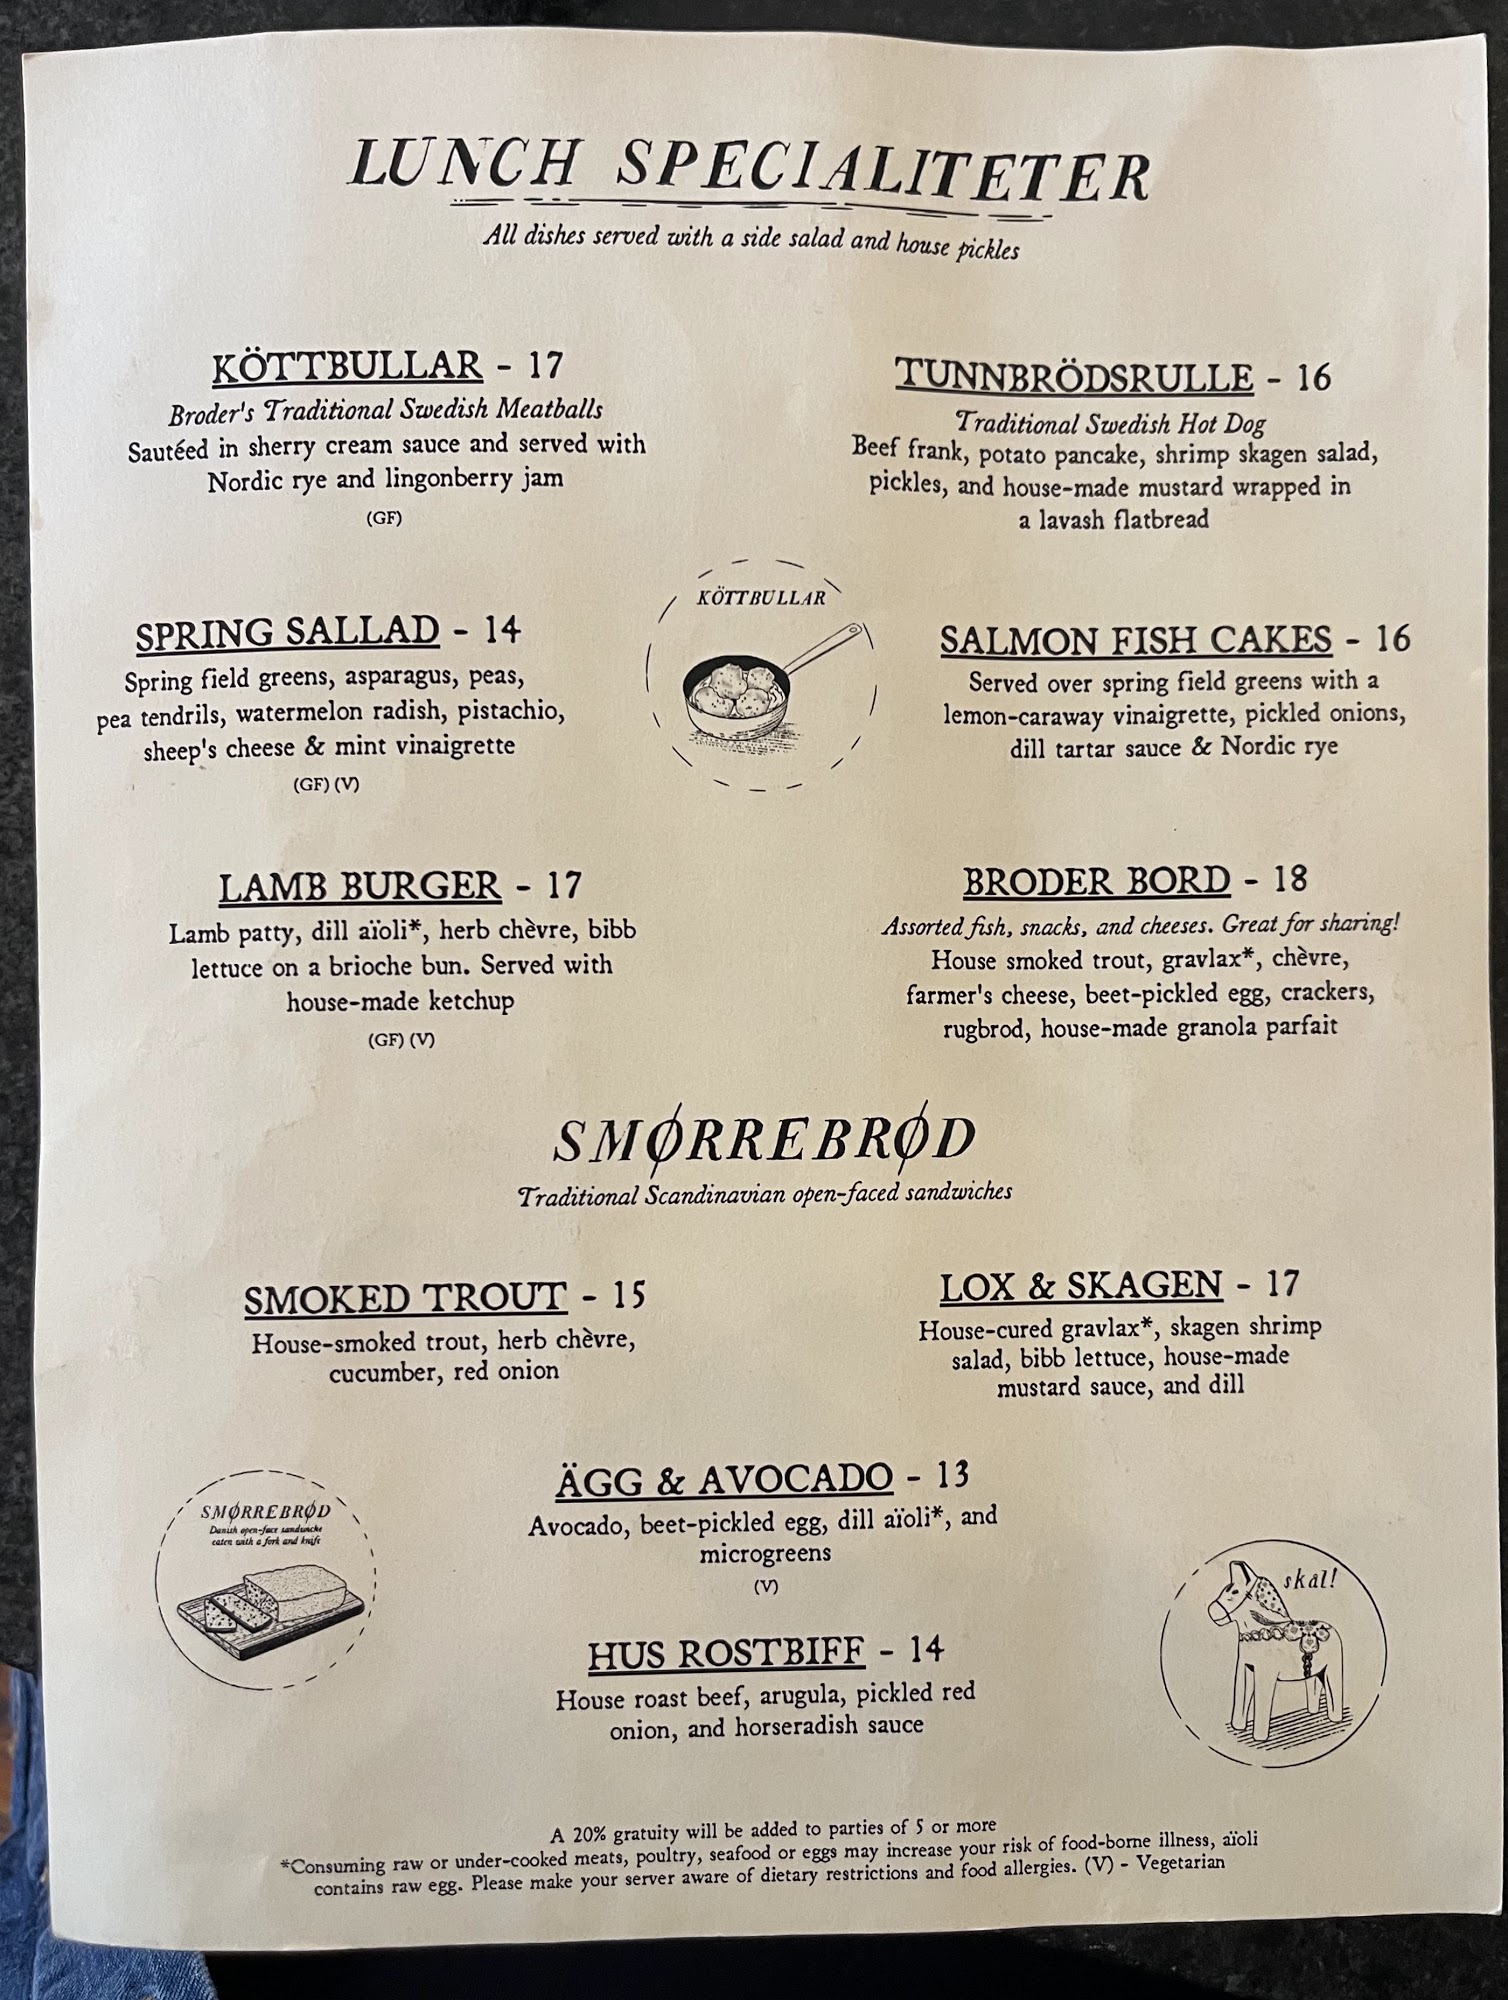 LUNCH SPECIALITETER
All dishes served with a side salad and house pickles
KÖTTBULLAR - 17
Broder's Traditional Swedish Meatballs
Sautéed in sherry cream sauce and served with
Nordic rye and lingonberry jam
(GF)
TUNNBRÖDSRULLE - 16
Traditional Swedish Hot Dog
Beef frank, potato pancake, shrimp skagen salad,
pickles, and house-made mustard wrapped in
a lavash flatbread
KÖTTBULLAR
SPRING SALLAD - 14
Spring field greens, asparagus, peas,
pea tendrils, watermelon radish, pistachio,
sheep's cheese & mint vinaigrette
(GF) (V)
SALMON FISH CAKES - 16
Served over spring field greens with a
lemon-caraway vinaigrette, pickled onions,
dill tartar sauce & Nordic rye
LAMB BURGER - 17
Lamb patty, dill aïoli*, herb chèvre, bibb
lettuce on a brioche bun. Served with
house-made ketchup
(GF) (V)
BRODER BORD - 18
Assorted fish, snacks, and cheeses. Great for sharing!
House smoked trout, gravlax*, chèvre,
farmer's cheese, beet-pickled egg, crackers,
rugbrod, house-made granola parfait
SMØRREBRØD
Traditional Scandinavian open-faced sandwiches
SMOKED TROUT - 15
House-smoked trout, herb chèvre,
cucumber, red onion
LOX & SKAGEN - 17
House-cured gravlax*, skagen shrimp
salad, bibb lettuce, house-made
mustard sauce, and dill
ÄGG & AVOCADO - 13
Avocado, beet-pickled egg, dill aïoli*, and
microgreens
(V)
SMØRREBRØD
Danish open-face sandwiche
eaten with a fork and knife
skål!
HUS ROSTBIFF - 14
House roast beef, arugula, pickled red
onion, and horseradish sauce
A 20% gratuity will be added to parties of 5 or more
*Consuming raw or under-cooked meats, poultry, seafood or eggs may increase your risk of food-borne illness, aïoli
contains raw egg. Please make your server aware of dietary restrictions and food allergies. (V) - Vegetarian